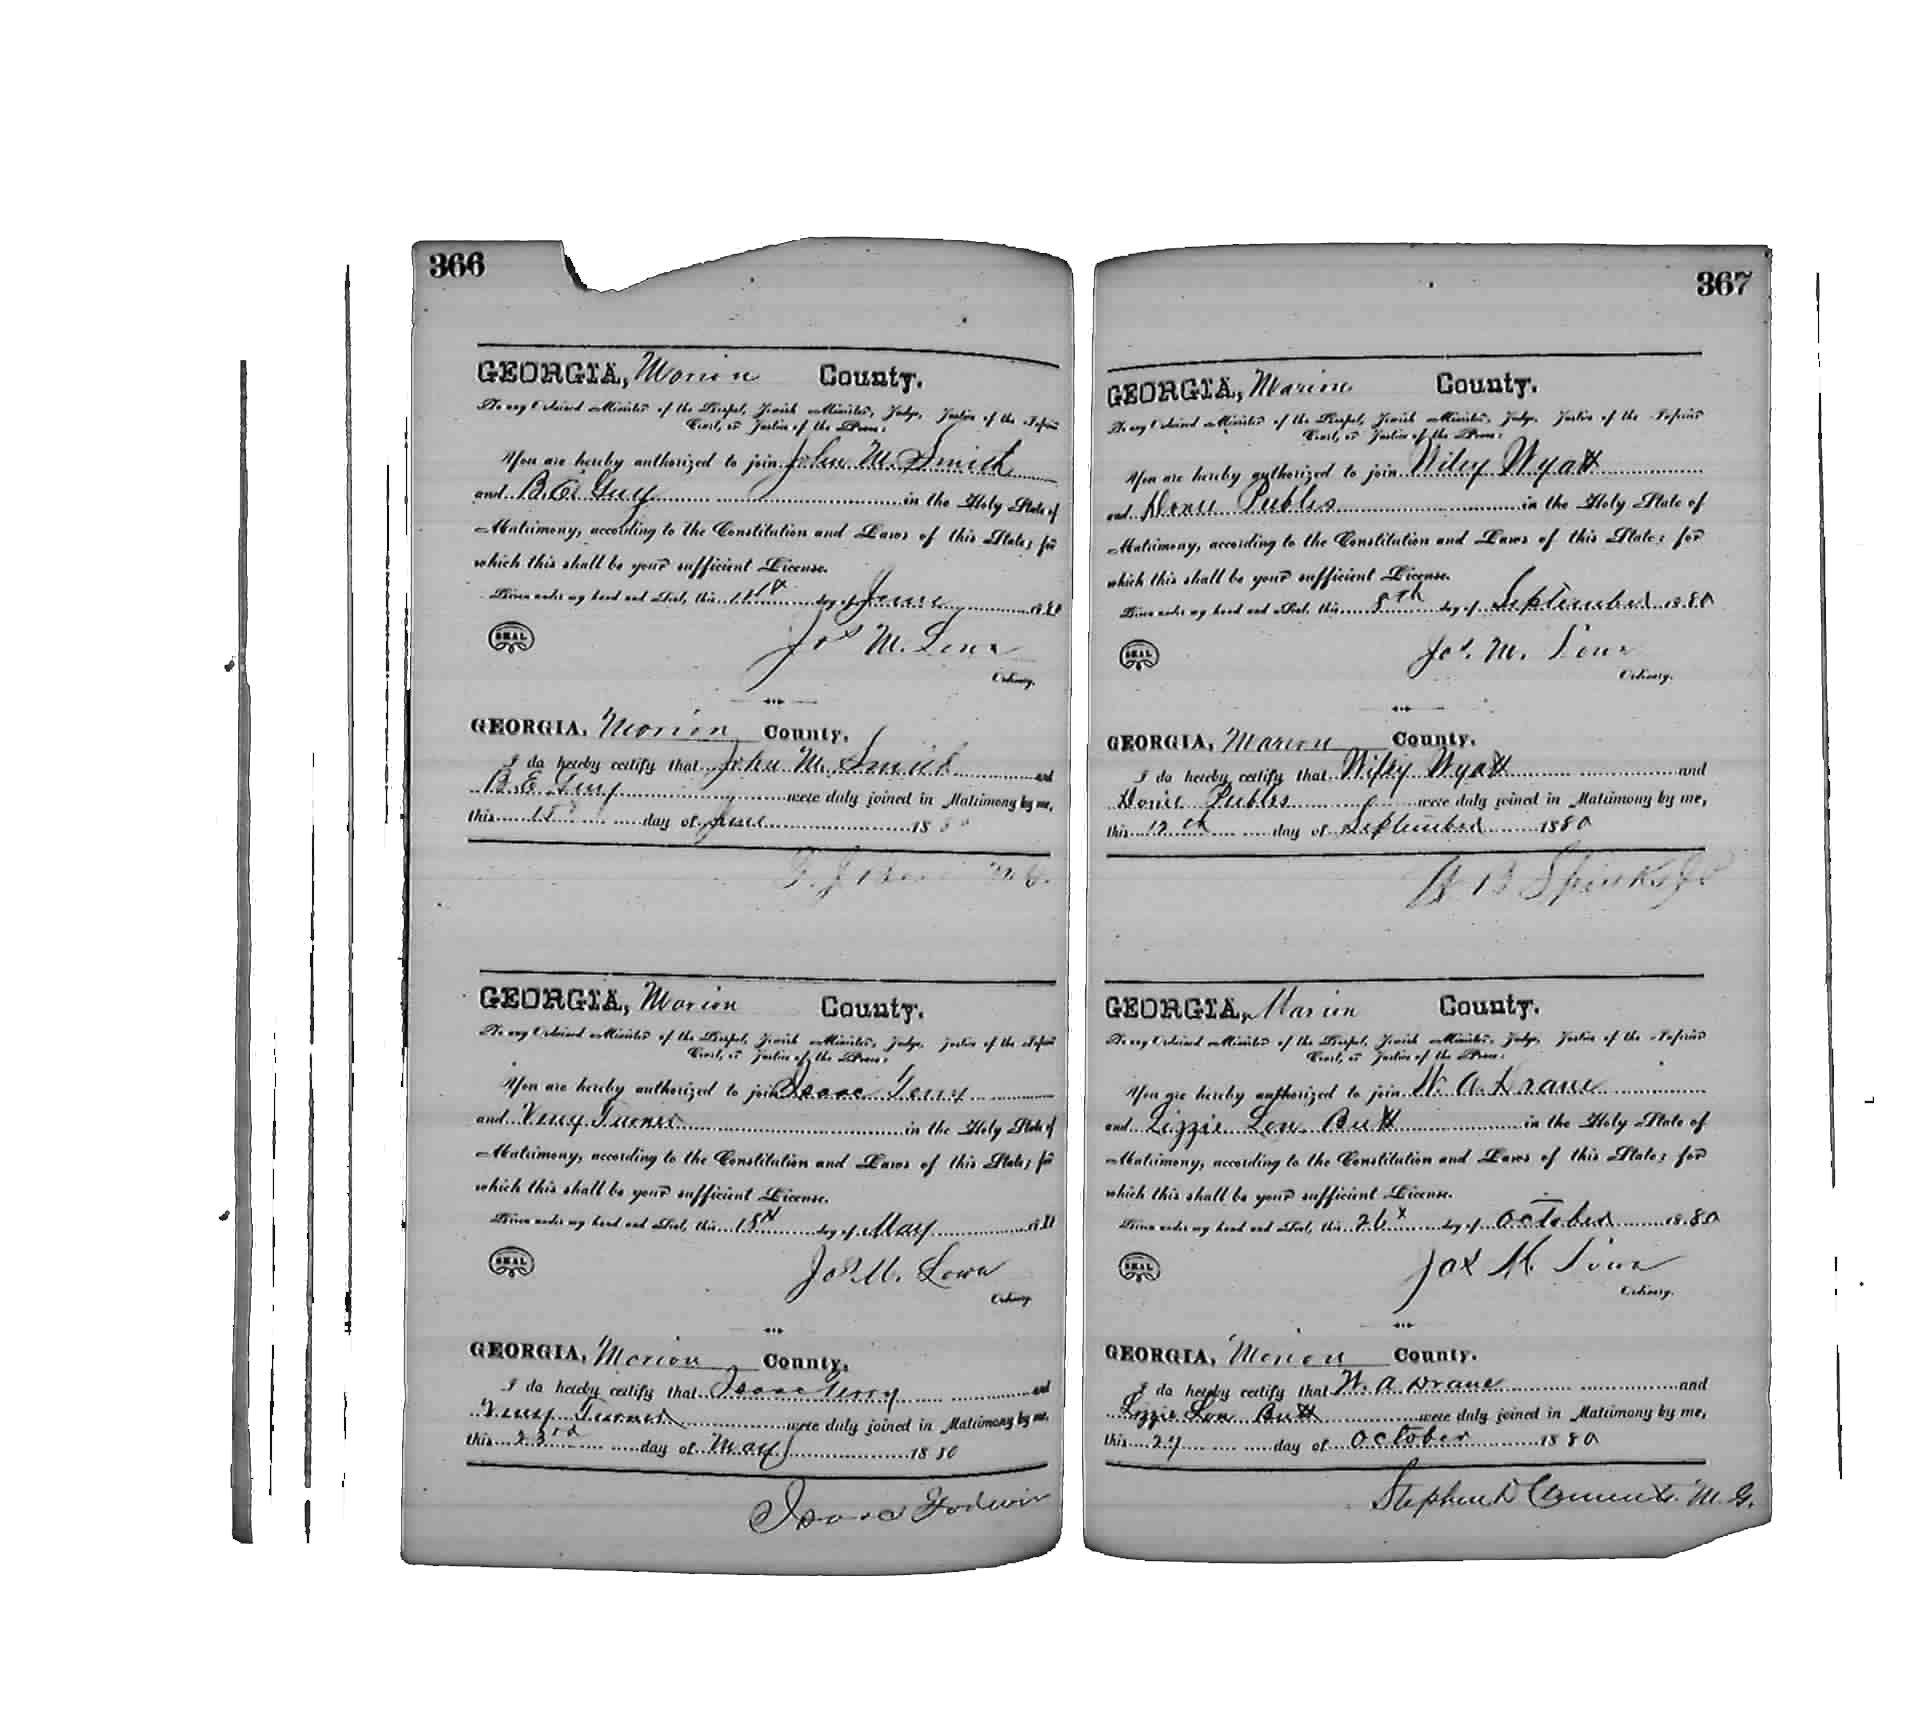 366
GEORGIA, Marion County.
To any Ordained Minister of the Gospel, Jewish Minister, Judge, Justice of the Inferior
Court, or Justice of the Peace:
You are hereby authorized to join John M. Smith
and B. E. Guy in the Holy State of
Matrimony, according to the Constitution and Laws of this State; for
which this shall be your sufficient License.
Given under my hand and Seal, this day of June 1880
SEAL
Jos M. Lowe
Ordinary.
GEORGIA, Marion County.
I do hereby certify that John M. Smith and
B. E. Guy were duly joined in Matrimony by me,
this day of June 1880
GEORGIA, Marion County.
To any Ordained Minister of the Gospel, Jewish Minister, Judge, Justice of the Inferior
Court, or Justice of the Peace:
You are hereby authorized to join Isaac Terry
and Viney Turner in the Holy State of
Matrimony, according to the Constitution and Laws of this State; for
which this shall be your sufficient License.
Given under my hand and Seal, this 18th day of May 18
SEAL
Jos M. Lowe
Ordinary.
GEORGIA, Marion County.
I do hereby certify that Isaac Terry and
Viney Turner were duly joined in Matrimony by me,
this 23rd day of May 1880
Isaac Godwin
367
GEORGIA, Marion County.
To any Ordained Minister of the Gospel, Jewish Minister, Judge, Justice of the Inferior
Court, or Justice of the Peace:
You are hereby authorized to join Wiley Wyatt
and Peebles in the Holy State of
Matrimony, according to the Constitution and Laws of this State; for
which this shall be your sufficient License.
Given under my hand and Seal, this 8th day of September 1880
SEAL
Jos. M. Lowe
Ordinary.
GEORGIA, Marion County.
I do hereby certify that Wiley Wyatt and
Peebles were duly joined in Matrimony by me,
this 12th day of September 1880
B Spinks
GEORGIA, Marion County.
To any Ordained Minister of the Gospel, Jewish Minister, Judge, Justice of the Inferior
Court, or Justice of the Peace:
You are hereby authorized to join W. A. Drane
and Lizzie Lou Butt in the Holy State of
Matrimony, according to the Constitution and Laws of this State; for
which this shall be your sufficient License.
Given under my hand and Seal, this 26th day of October 1880
SEAL
Jos M. Lowe
Ordinary.
GEORGIA, Marion County.
I do hereby certify that W. A Drane and
Lizzie Lou Butt were duly joined in Matrimony by me,
this 27 day of October 1880
Stephen D Clements M. G.